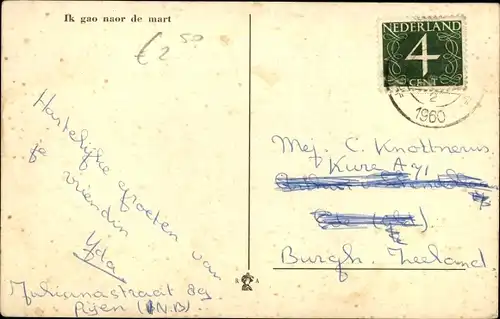 Ik gao naor de mart
€ 2 50
NEDERLAND
4
CENT
2
1960
Hartelijke groeten van
je vriendin
Yda
Julianastraat 89
Rijen (N.B)
Mej. C. Knotnerus
Burgh. Zeeland.
R A